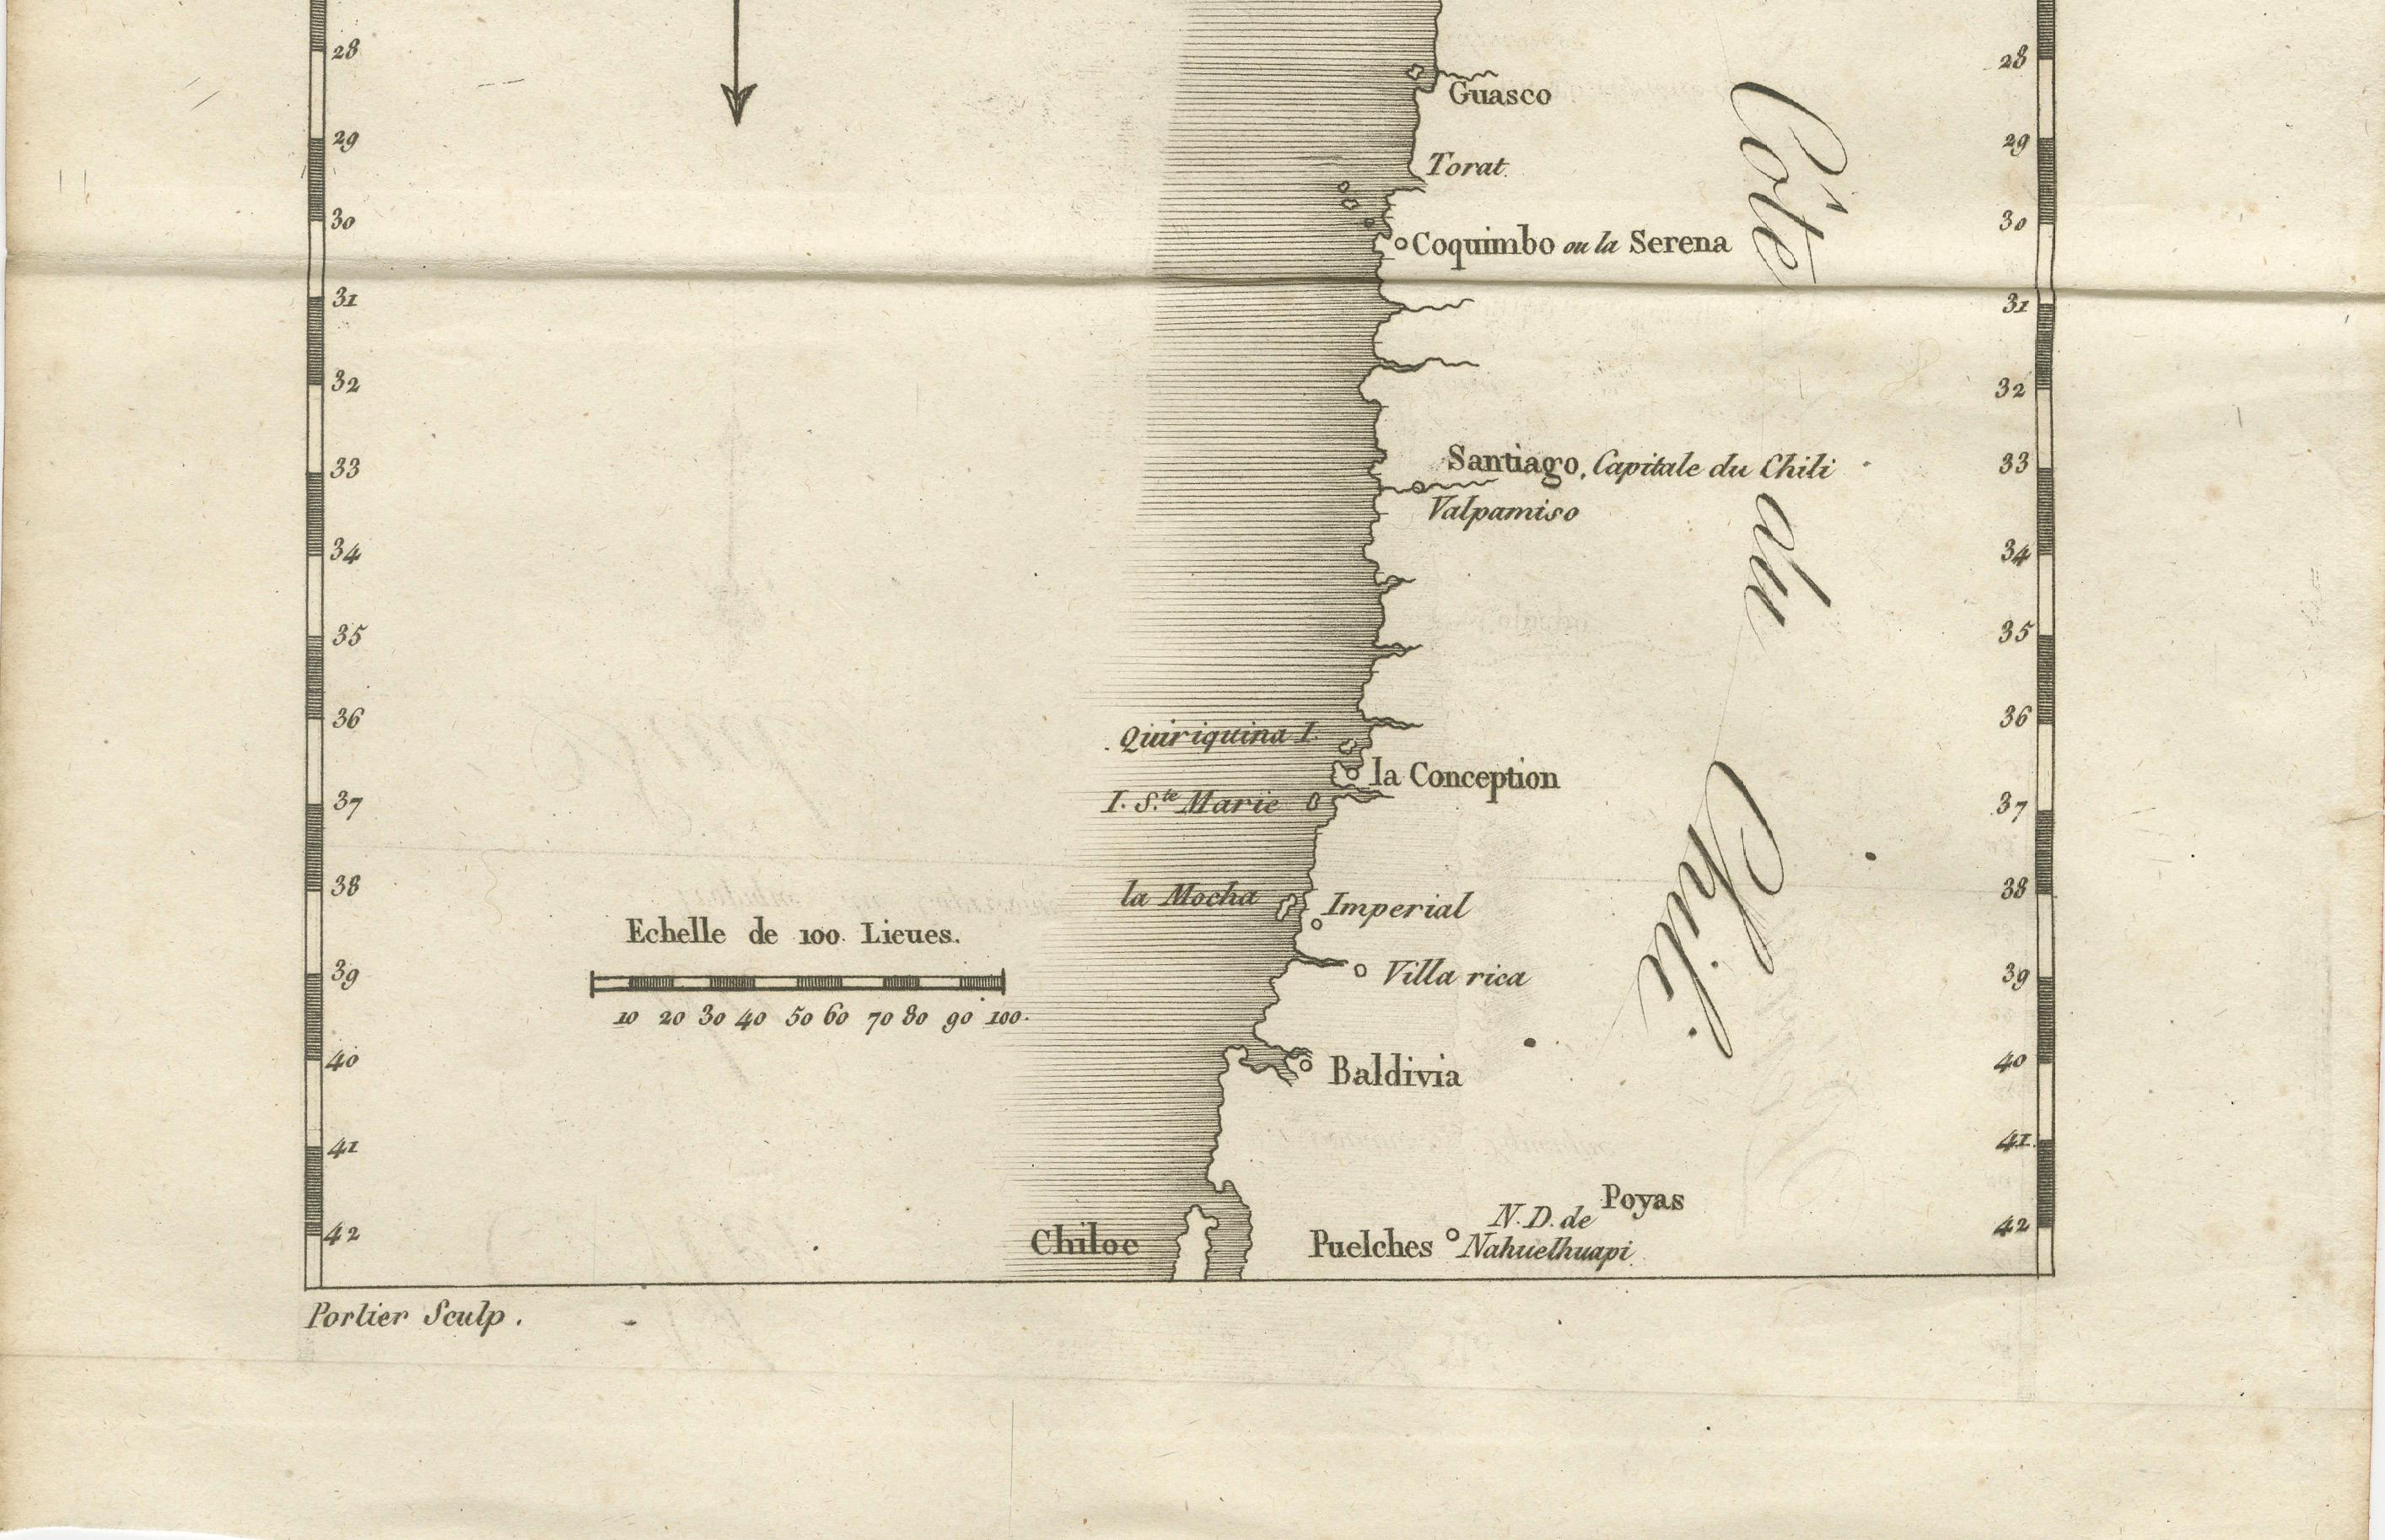 28 28
Guasco
29 29
Torat.
30 30
Coquimbo ou la Serena
31 31
32 32
Santiago, Capitale du Chili
33 33
Valpamiso
34 34
35 35
36 36
Quiriquina I.
la Conception
I. S.te Marie
37 37
38 38
la Mocha
Imperial
Echelle de 100 Lieues.
39 39
Villa rica
10 20 30 40 50 60 70 80 90 100.
40 40
Baldivia
41 41
Poyas
N. D. de
42 42
Chiloe
Puelches
Nahuelhuapi.
Côte du Chili
Porlier Sculp.